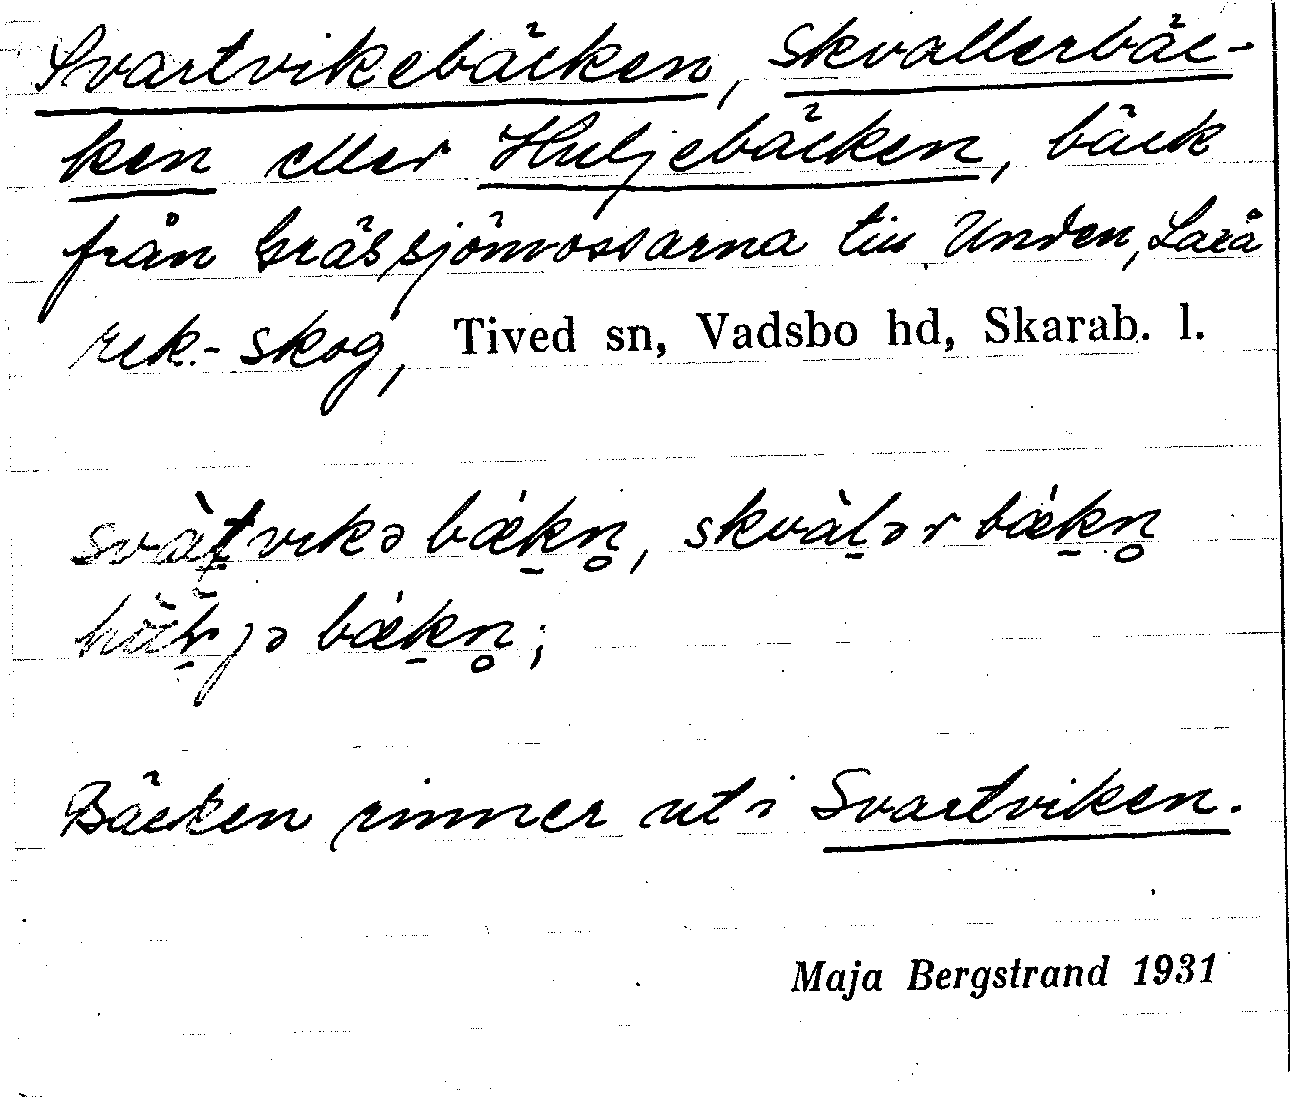 Svartvikebäcken, Skvallerbäc-
ken eller Huljebäcken, bäck
från Gräs sjömossarna till Unden, Laxå
rek.- skog, Tived sn, Vadsbo hd, Skarab. l.
svàt̠vikə bǽk̠n̥, skvàl̠ər bǽk̠n̥
bǽk̠n̥;
Bäcken rinner ut i Svartviken.
Maja Bergstrand 1931